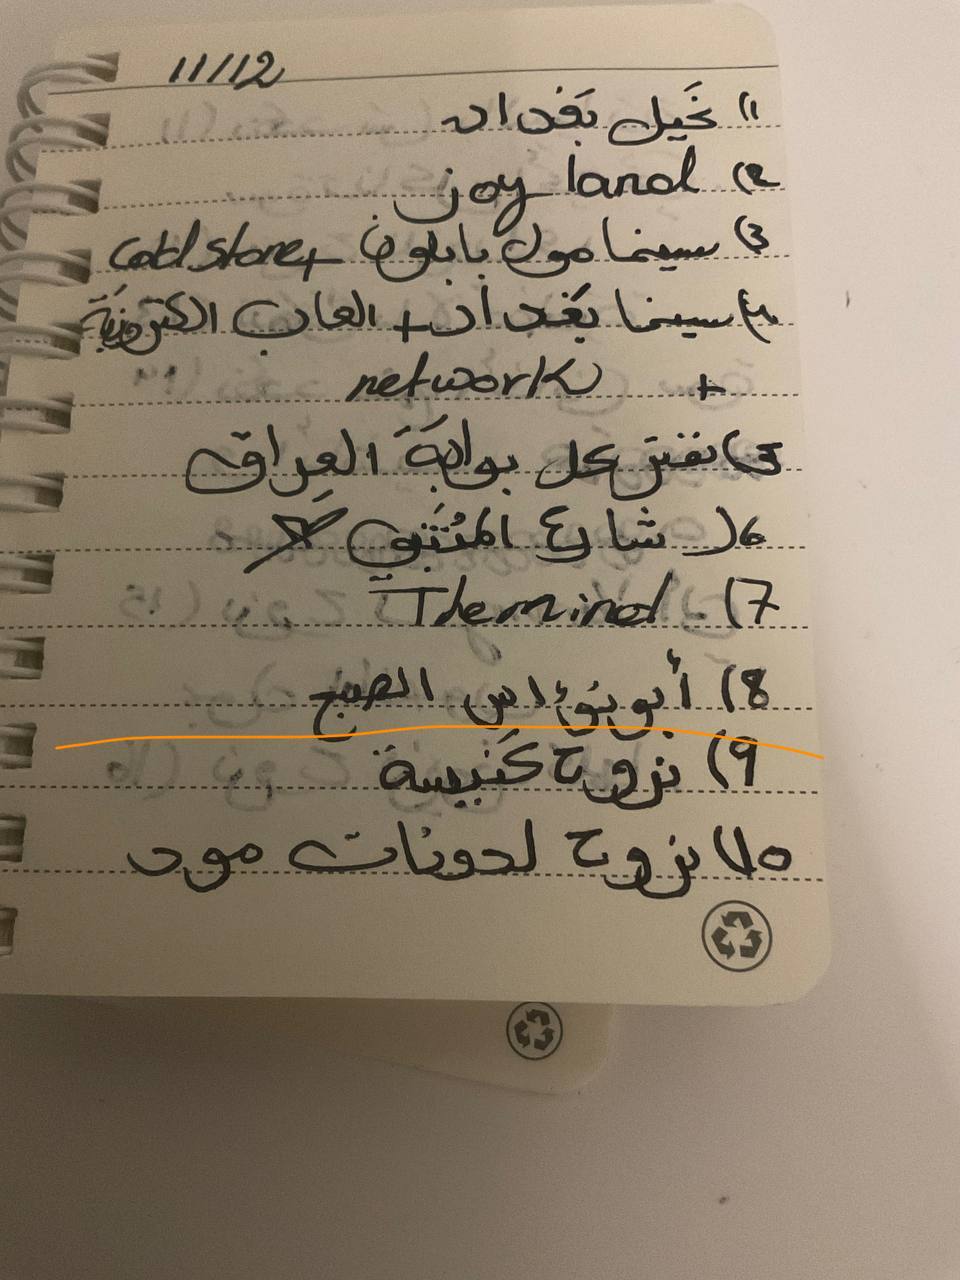 11/12
1) نخيل بغداد
2) joy land
3) سينما مول بابلون + cold stone
4) سينما بغداد + العاب الكترونية
+ network
5) نفتر كل بوابة العراق
6) شارع المتنبي
7) The mind
8) أبو نؤاس الصبح
9) نروح كنيسة
10) نروح لدونات مود